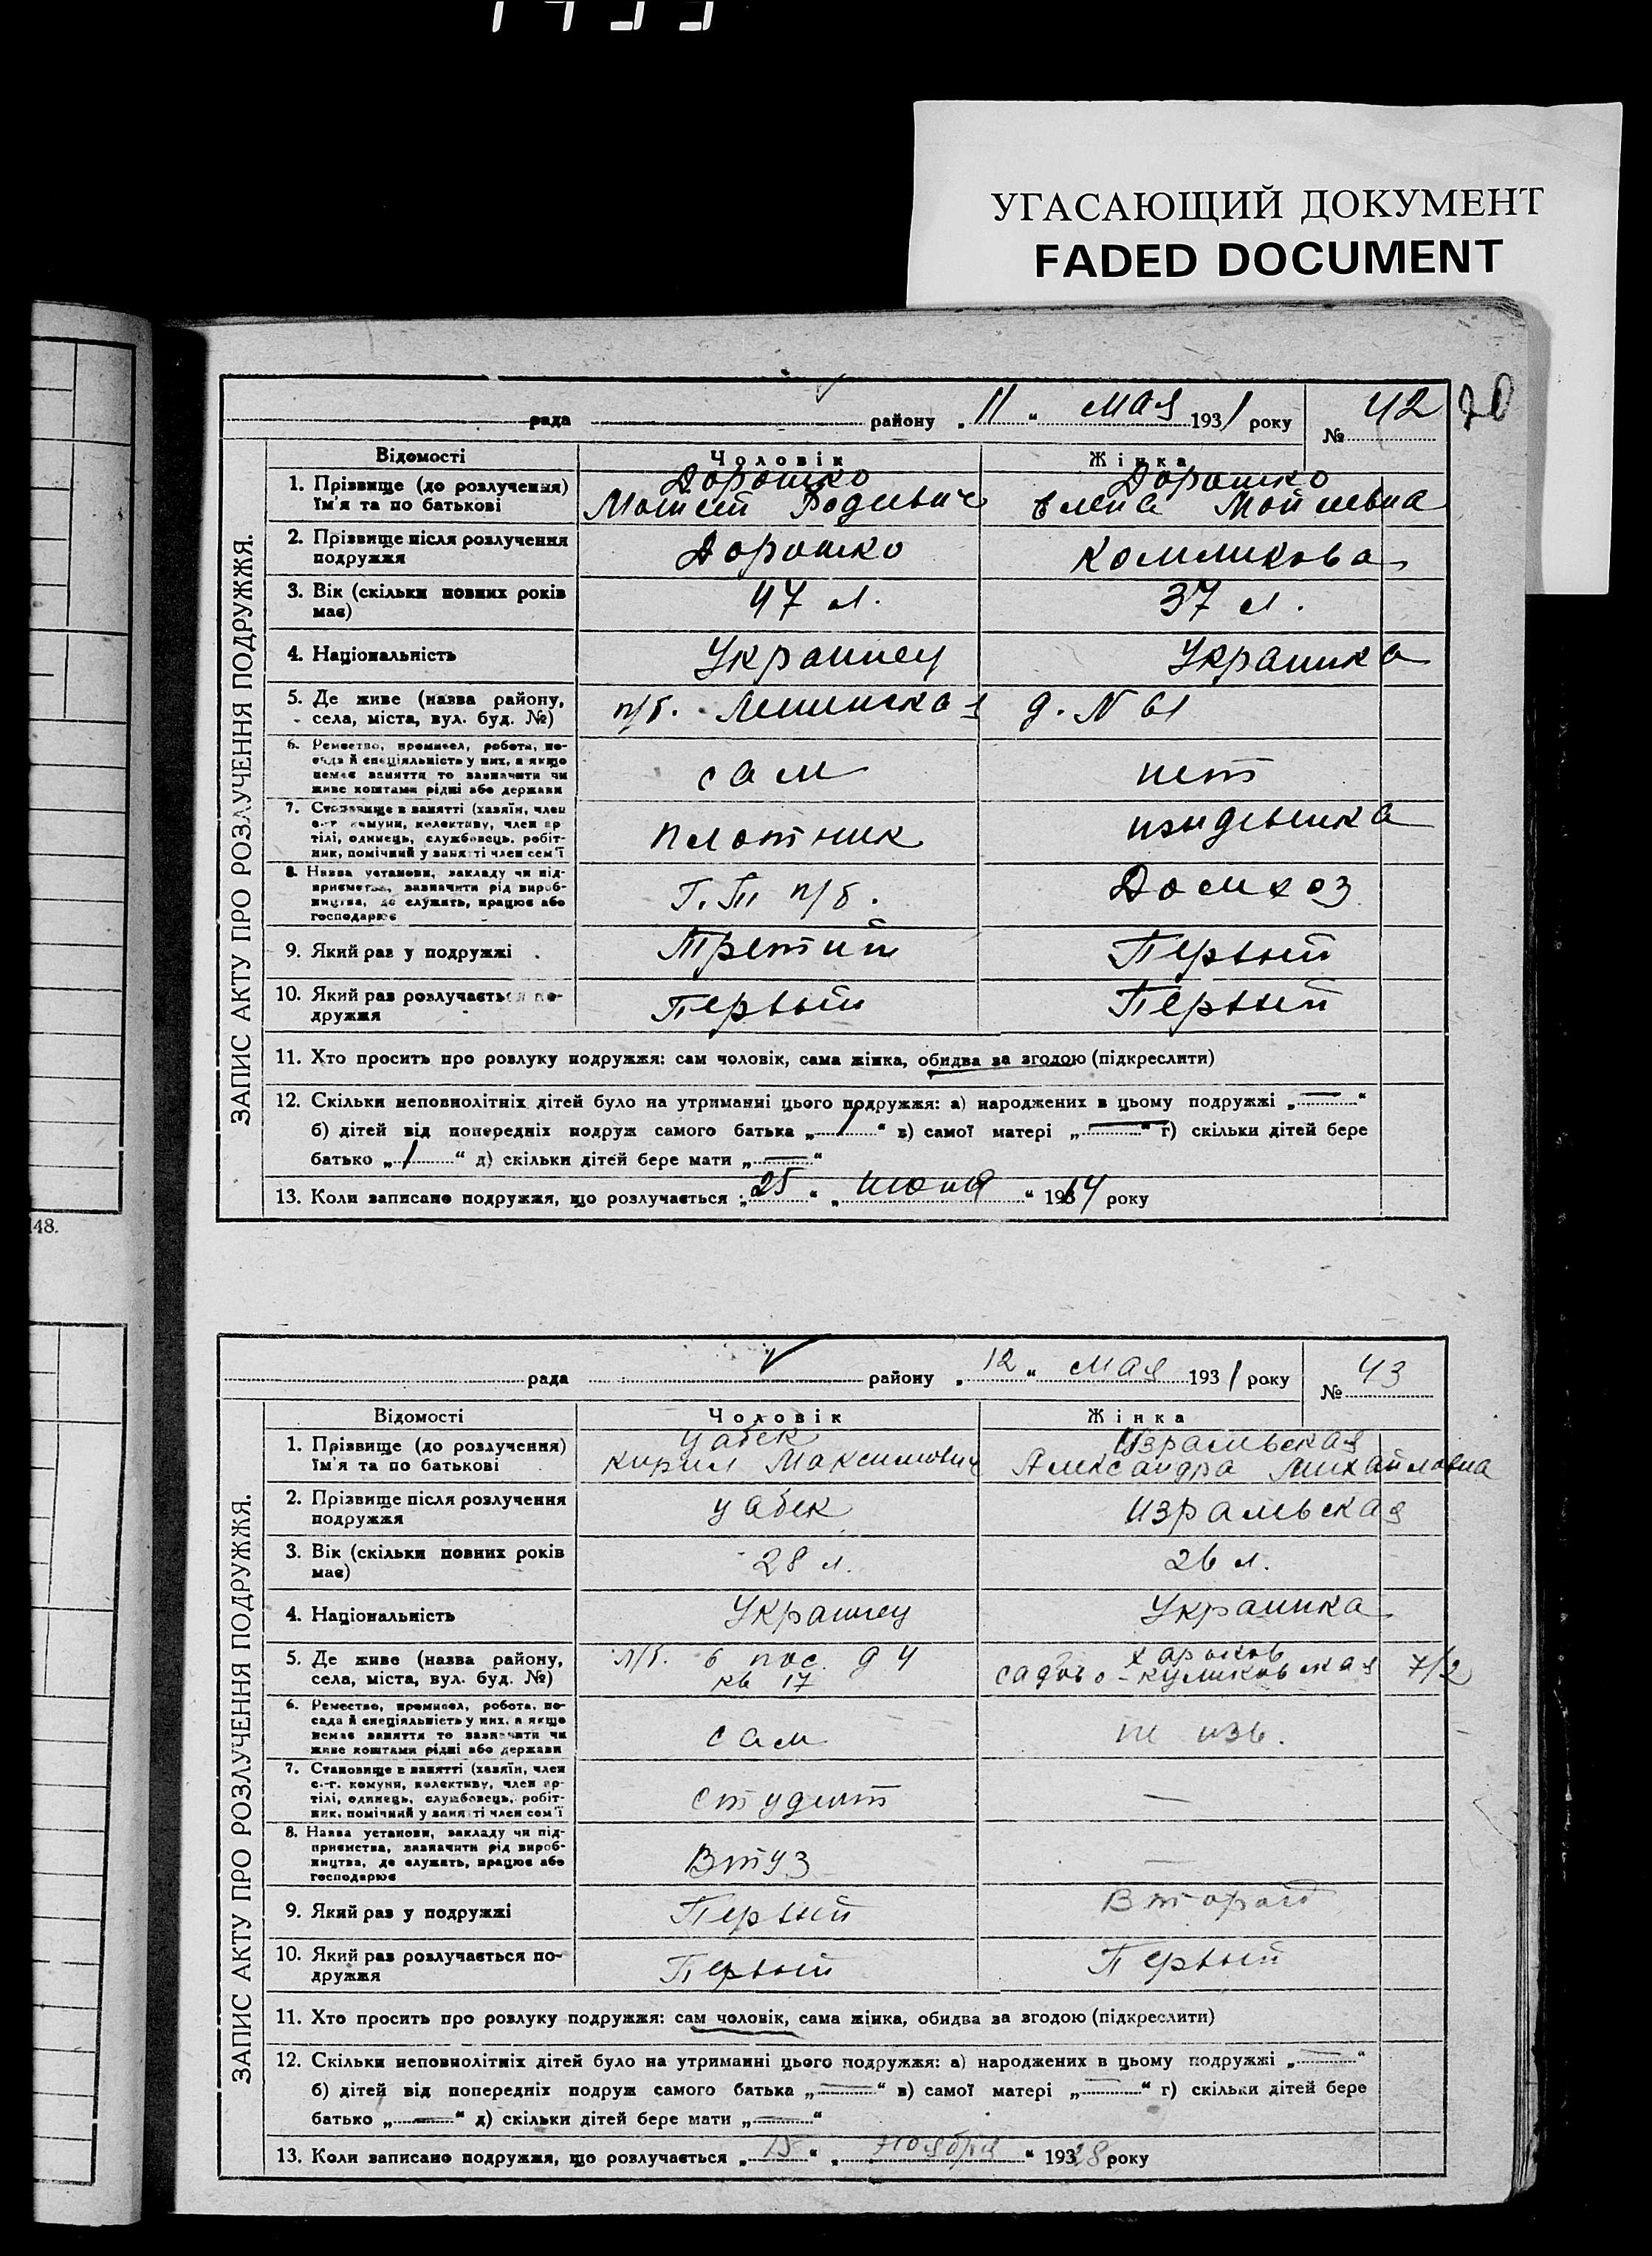 УГАСАЮЩИЙ ДОКУМЕНТ
FADED DOCUMENT
70
48.
ЗАПИС АКТУ ПРО РОЗЛУЧЕННЯ ПОДРУЖЖЯ.
рада району „ 11 “ мая 1931 року № 42
Відомості Чоловік Жінка
1. Прізвище (до розлучення) Дорошко Дорошко
ім'я та по батькові Елена
2. Прізвище після розлучення Дорошко
подружжя
3. Вік (скільки повних років 47 л. 37 л.
має)
4. Національність Украинец Украинка
5. Де живе (назва району, п/б. Ленинская д. N 61
села, міста, вул. буд. №)
6. Ремество, промисел, робота, по-
сада й спеціяльність у них, а якщо сам нет
немає заняття то зазначити чи
живе коштами рідні або держави
7. Становище в занятті (хазяїн, член
с.-г. комуни, колективу, член ар- плотник иждевенка
тілі, одинець, службовець, робіт-
ник, помічний у занятті член сем'ї
8. Назва установи, закладу чи під-
приємства, зазначити рід вироб- п/б. Домхоз
ництва, де служить, працює або
господарює
9. Який раз у подружжі Третий Первый
10. Який раз розлучається по- Первый Первый
дружжя
11. Хто просить про розлуку подружжя: сам чоловік, сама жінка, обидва за згодою (підкреслити)
12. Скільки неповнолітніх дітей було на утриманні цього подружжя: а) народжених в цьому подружжі „—“
б) дітей від попередніх подруж самого батька „1“ в) самої матері „—“ г) скільки дітей бере
батько „1“ д) скільки дітей бере мати „—“
13. Коли записано подружжя, що розлучається „25“ „июня“ 1914 року
ЗАПИС АКТУ ПРО РОЗЛУЧЕННЯ ПОДРУЖЖЯ.
рада району „ 12 “ мая 1931 року № 43
Відомості Чоловік Жінка
1. Прізвище (до розлучення) Цабек Израильская
ім'я та по батькові Кирил Максимович Александра Михайловна
2. Прізвище після розлучення Цабек Израильская
подружжя
3. Вік (скільки повних років 28 л. 26 л.
має)
4. Національність Украинец Украинка
5. Де живе (назва району, п/б. 6 пос. д 4 Харьков
села, міста, вул. буд. №) кв 17 Садово-Куликовская 7/2
6. Ремество, промисел, робота, по-
сада й спеціяльність у них, а якщо
немає заняття то зазначити чи сам не изв.
живе коштами рідні або держави
7. Становище в занятті (хазяїн, член
с.-г. комуни, колективу, член ар-
тілі, одинець, службовець, робіт- студент —
ник, помічний у занятті член сем'ї
8. Назва установи, закладу чи під-
приємства, зазначити рід вироб-
ництва, де служить, працює або Втуз —
господарює
9. Який раз у подружжі Первый Второй
10. Який раз розлучається по- Первый Первый
дружжя
11. Хто просить про розлуку подружжя: сам чоловік, сама жінка, обидва за згодою (підкреслити)
12. Скільки неповнолітніх дітей було на утриманні цього подружжя: а) народжених в цьому подружжі „—“
б) дітей від попередніх подруж самого батька „—“ в) самої матері „—“ г) скільки дітей бере
батько „—“ д) скільки дітей бере мати „—“
13. Коли записано подружжя, що розлучається „15“ „ноября“ 1928 року